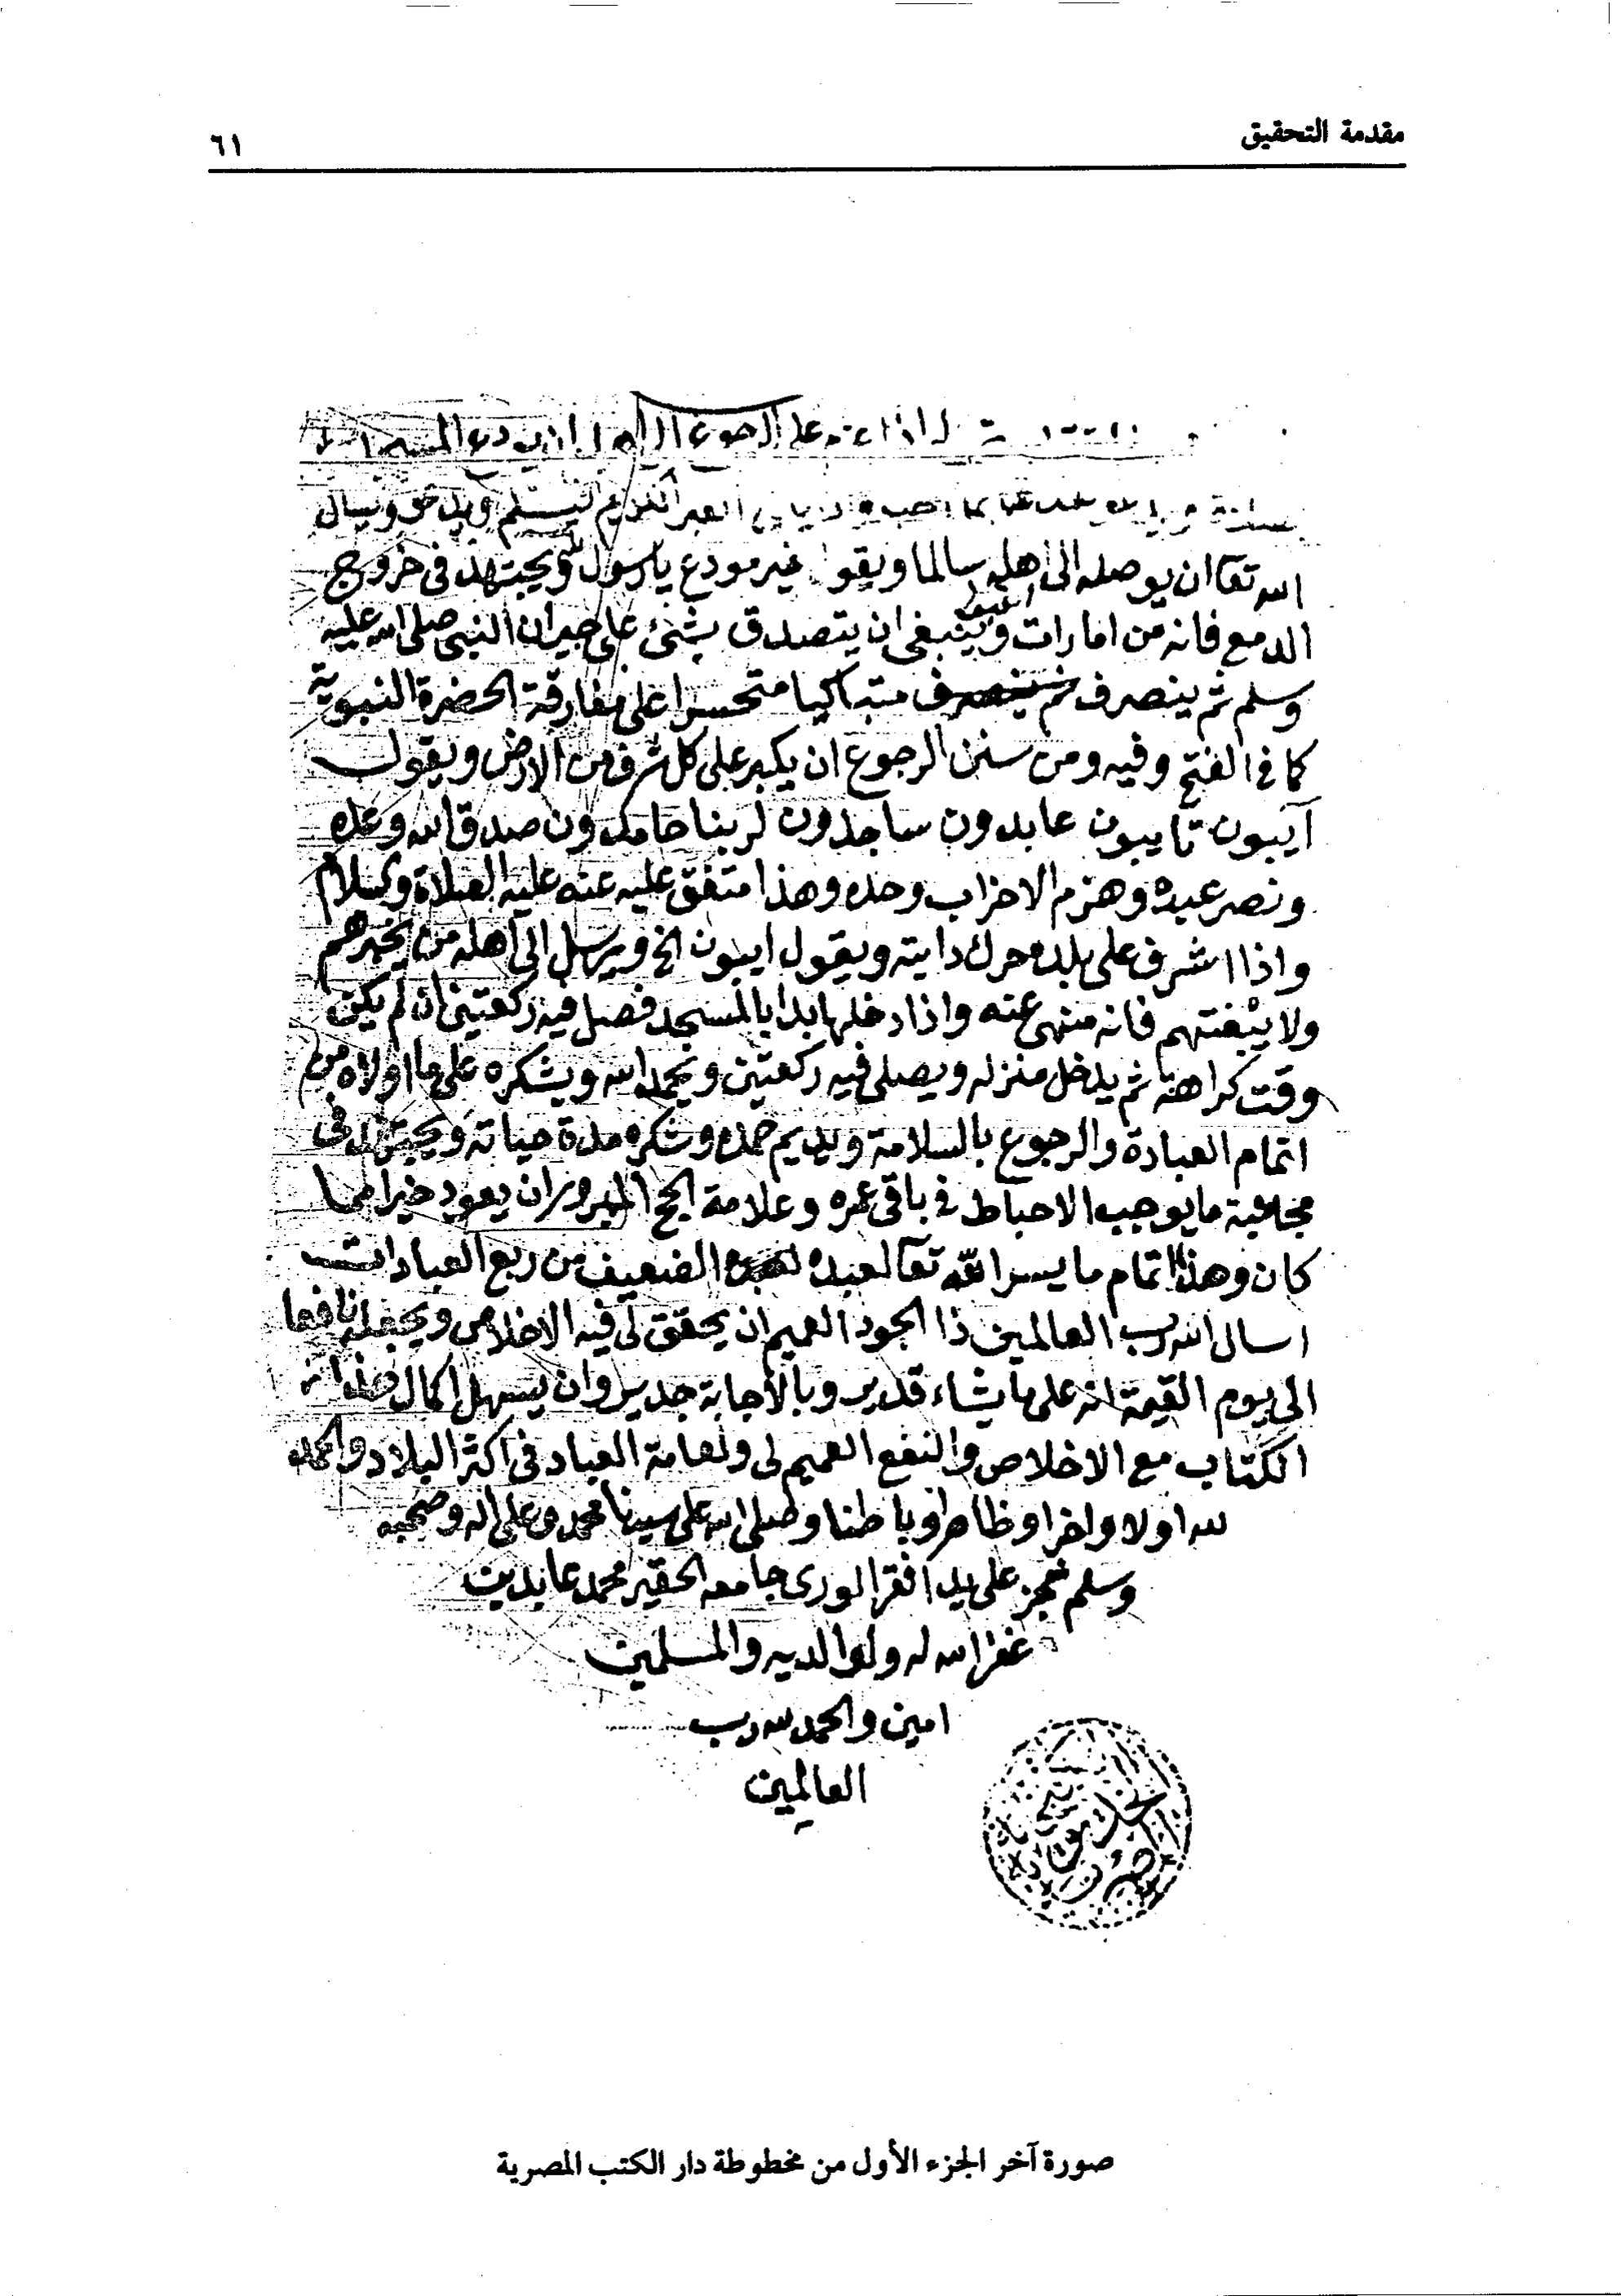 مقدمة التحقيق
٦١
على الرجوع ان يودع المسجد
القبر الكريم فيسلم ويدعو ويسال
الله تعا ان يوصله الى اهله سالما ويقول غير مودع يا رسول الله ويجتهد فى خروج
الدمع فانه من امارات القبول وينبغى ان يتصدق بشئ على جيران النبى صلى الله عليه
وسلم ثم ينصرف متباكيا متحسرا على مفارقة الحضرة النبوية
كما فى الفتح وفيه ومن سنن الرجوع ان يكبر على كل شرف من الارض ويقول
آيبون تايبون عابدون ساجدون لربنا حامدون صدق الله وعده
ونصر عبده وهزم الاحزاب وحده وهذا متفق عليه عنه عليه الصلاة والسلام
واذا اشرف على بلده حرك دابته ويقول ايبون الخ ويرسل الى اهله من يخبرهم
ولا يبغتهم فانه منهى عنه واذا دخلها بدا بالمسجد فصلى فيه ركعتين ان لم يكن
وقت كراهة ثم يدخل منزله ويصلى فيه ركعتين ويحمد الله ويشكره على ما اولاه من
اتمام العبادة والرجوع بالسلامة ويديم حمده وشكره مدة حياته ويجتهد فى
مجانبة ما يوجب الاحباط فى باقى عمره وعلامة الحج المبرور ان يعود خيرا مما
كان وهذا اتمام ما يسر الله تعا لعبده الضعيف من ربع العبادات
اسال الله رب العالمين ذا الجود العميم ان يحقق لى فيه الاخلاص ويجعله نافعا
الى يوم القيمة انه على ما يشاء قدير وبالاجابة جدير وان يسهل اكمال هذا
الكتاب مع الاخلاص والنفع العميم لى ولعامة العباد فى اكثر البلاد والحمد
لله اولا واخرا وظاهرا وباطنا وصلى الله على سيدنا محمد وعلى اله وصحبه
وسلم نجز على يد افقر الورى جامعه الحقير محمد عابدين
غفر الله له ولوالديه والمسلمين
امين والحمد لله رب
العالمين
صورة آخر الجزء الأول من مخطوطة دار الكتب المصرية